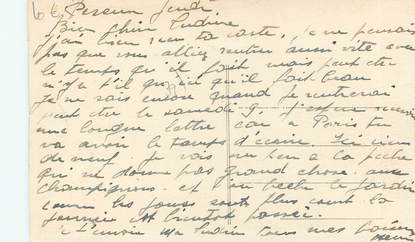 6 Jeudi
Bien chère
J'ai bien reçu ta carte, je ne pensais
pas que vous alliez rentrer aussi vite avec
le temps qu'il fait mais peut être
n'y a t'il qu'ici qu'il fait beau
Je ne sais encore quand je rentrerai
peut être le samedi 9, j'espère
une longue lettre car à Paris tu
va avoir le temps d'écrire. Ici rien
de neuf. je vais un peu à la pêche
qui ne donne pas grand chose, aux
champignons et puis le jardin
comme les jours sont plus court la
journée est bientôt passée.
Je t'envoie ma tous mes bons